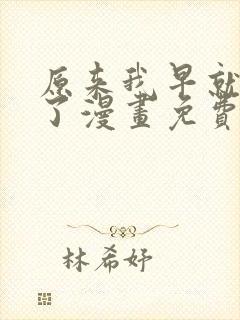 原来我早就
了漫畫免費
林希妤